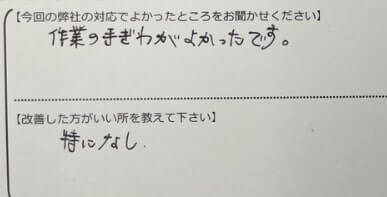 【今回の弊社の対応でよかったところをお聞かせください】
作業の手ぎわがよかったです。
【改善した方がいい所を教えて下さい】
特になし.